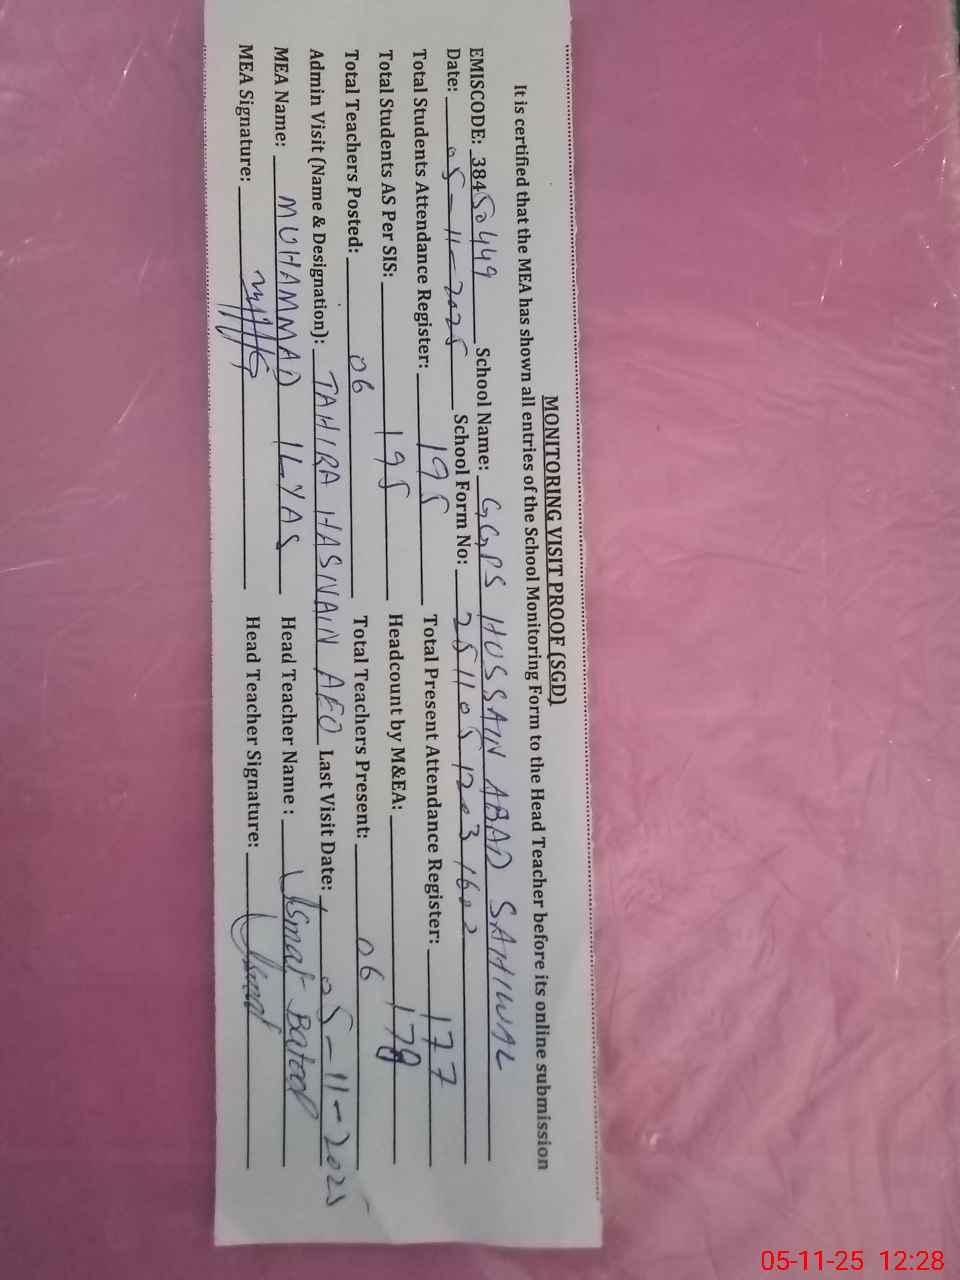 MONITORING VISIT PROOF (SGD)
It is certified that the MEA has shown all entries of the School Monitoring Form to the Head Teacher before its online submission
EMISCODE: 38450449 School Name: GGPS HUSSAIN ABAD SAHIWAL
Date: 05-11-2025 School Form No: 25110512031602
Total Students Attendance Register: 195 Total Present Attendance Register: 177
Total Students AS Per SIS: 195 Headcount by M&EA: 178
Total Teachers Posted: 06 Total Teachers Present: 06
Admin Visit (Name & Designation): TAHIRA HASNAIN AEO Last Visit Date: 05-11-2025
MEA Name: MUHAMMAD ILYAS Head Teacher Name : Ismat Batool
MEA Signature: Head Teacher Signature: Ismat
05-11-25 12:28